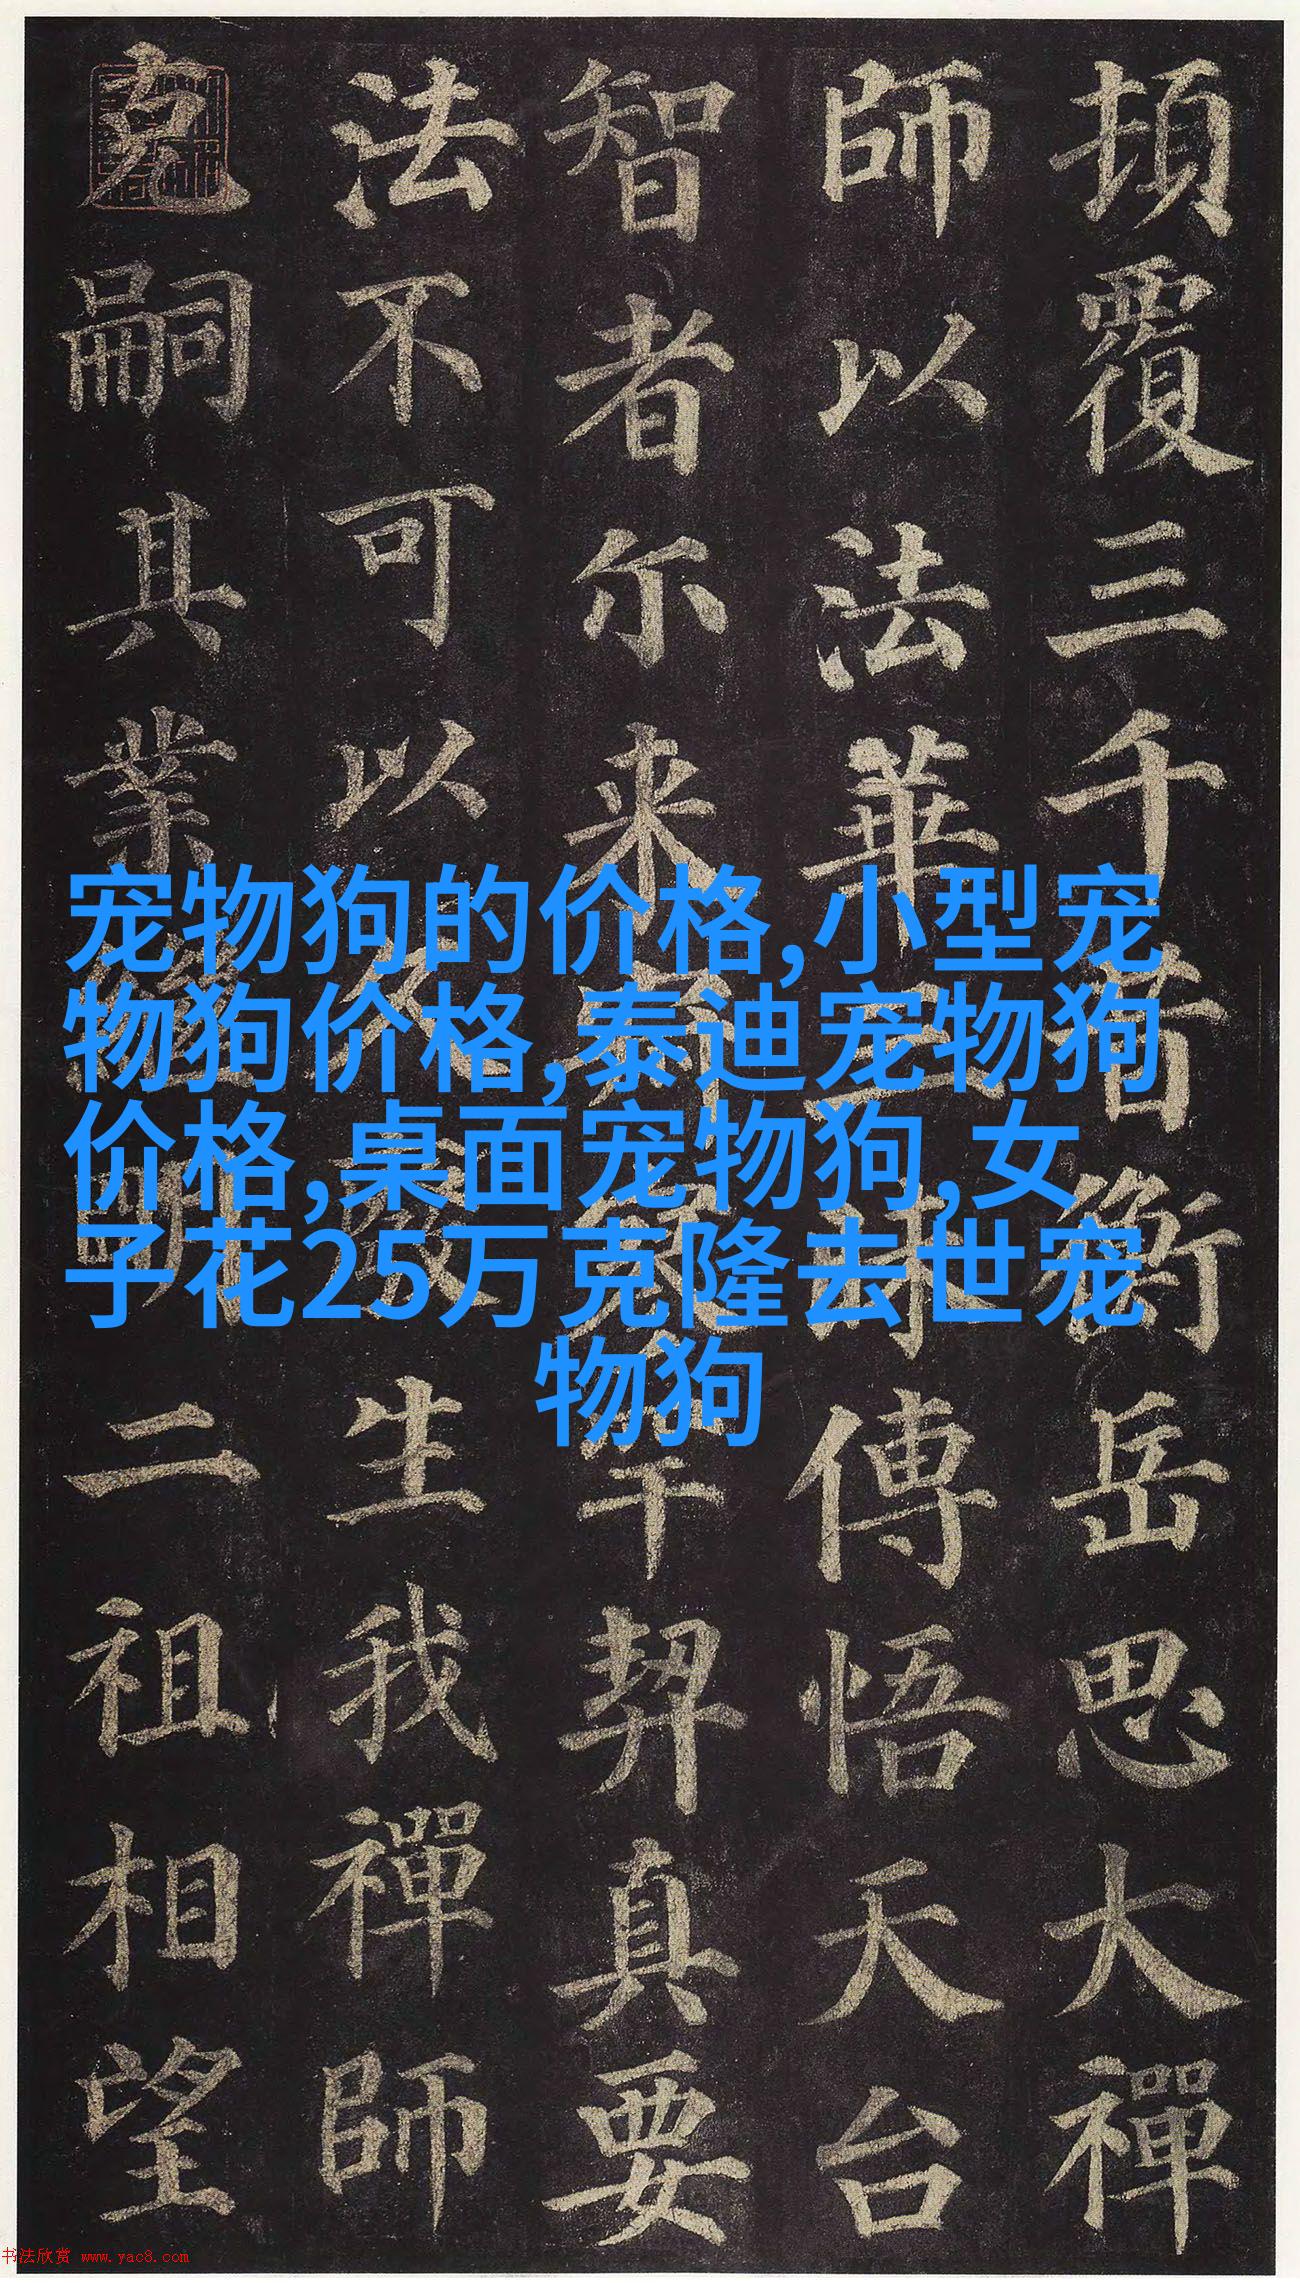 頂覆三千昔衡岳思大禪
師以法華三昧傳悟天台
智者尓来罕契真要
法不可以久廢生我禪師
克嗣其業明二祖相望
宠物狗的价格,小型宠
物狗价格,泰迪宠物狗
价格,桌面宠物狗,女
子花25万克隆去世宠
物狗
书法欣赏 www.yac8.com